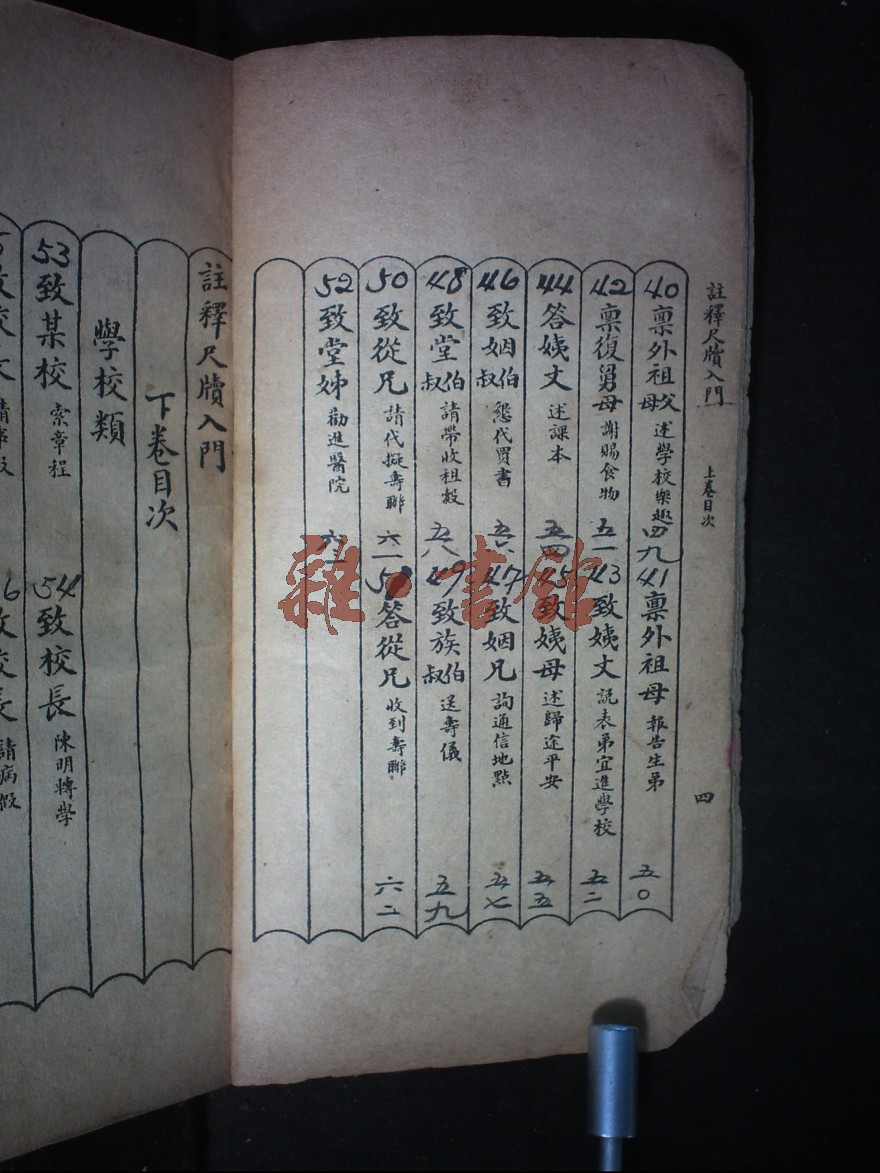 註釋尺牘入門 上卷目次 四
40 禀外祖父母 述學校樂趣 四九 41 禀外祖母 報告生弟 五〇
42 禀復舅母 謝賜食物 五一 43 致姨丈 說表弟宜進學校 五二
44 答姨丈 述課本 五四 45 致姨母 述歸途平安 五五
46 致姻伯叔 懇代買書 五六 47 致姻兄 詢通信地點 五七
48 致堂伯叔 請帶收租穀 五八 49 致族伯叔 送壽儀 五九
50 致從兄 請代擬壽聯 六一 答從兄 收到壽聯 六二
52 致堂姊 勸進醫院
雜·書館
註釋尺牘入門
下卷目次
學校類
53 致某校 索章程 54 致校長 陳明轉學
請病假